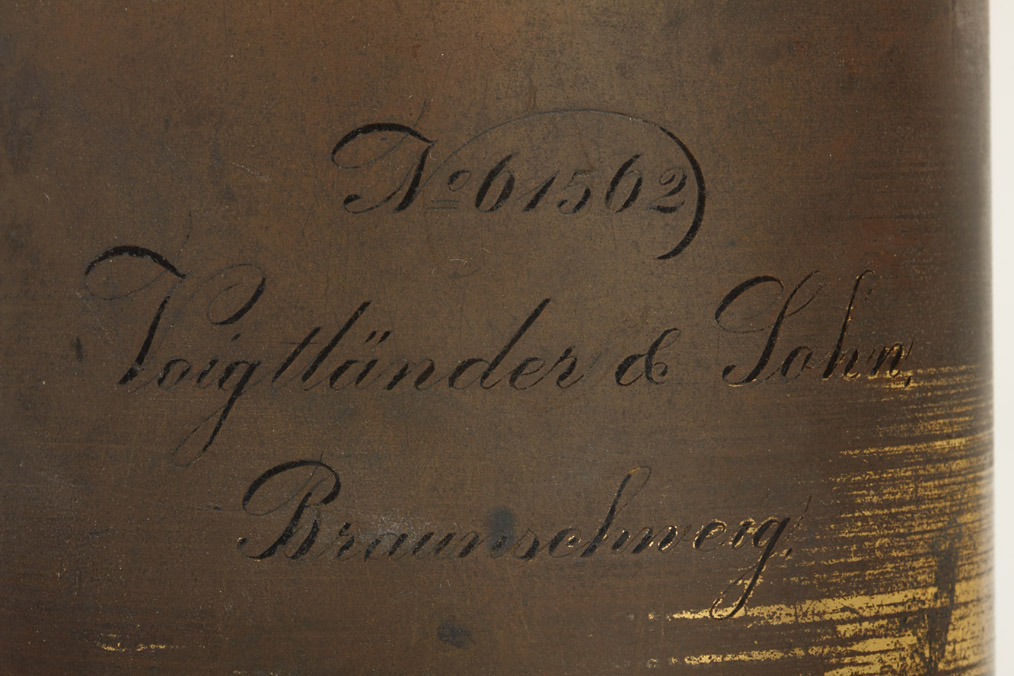 No 61562
Voigtländer & Sohn,
Braunschweig,